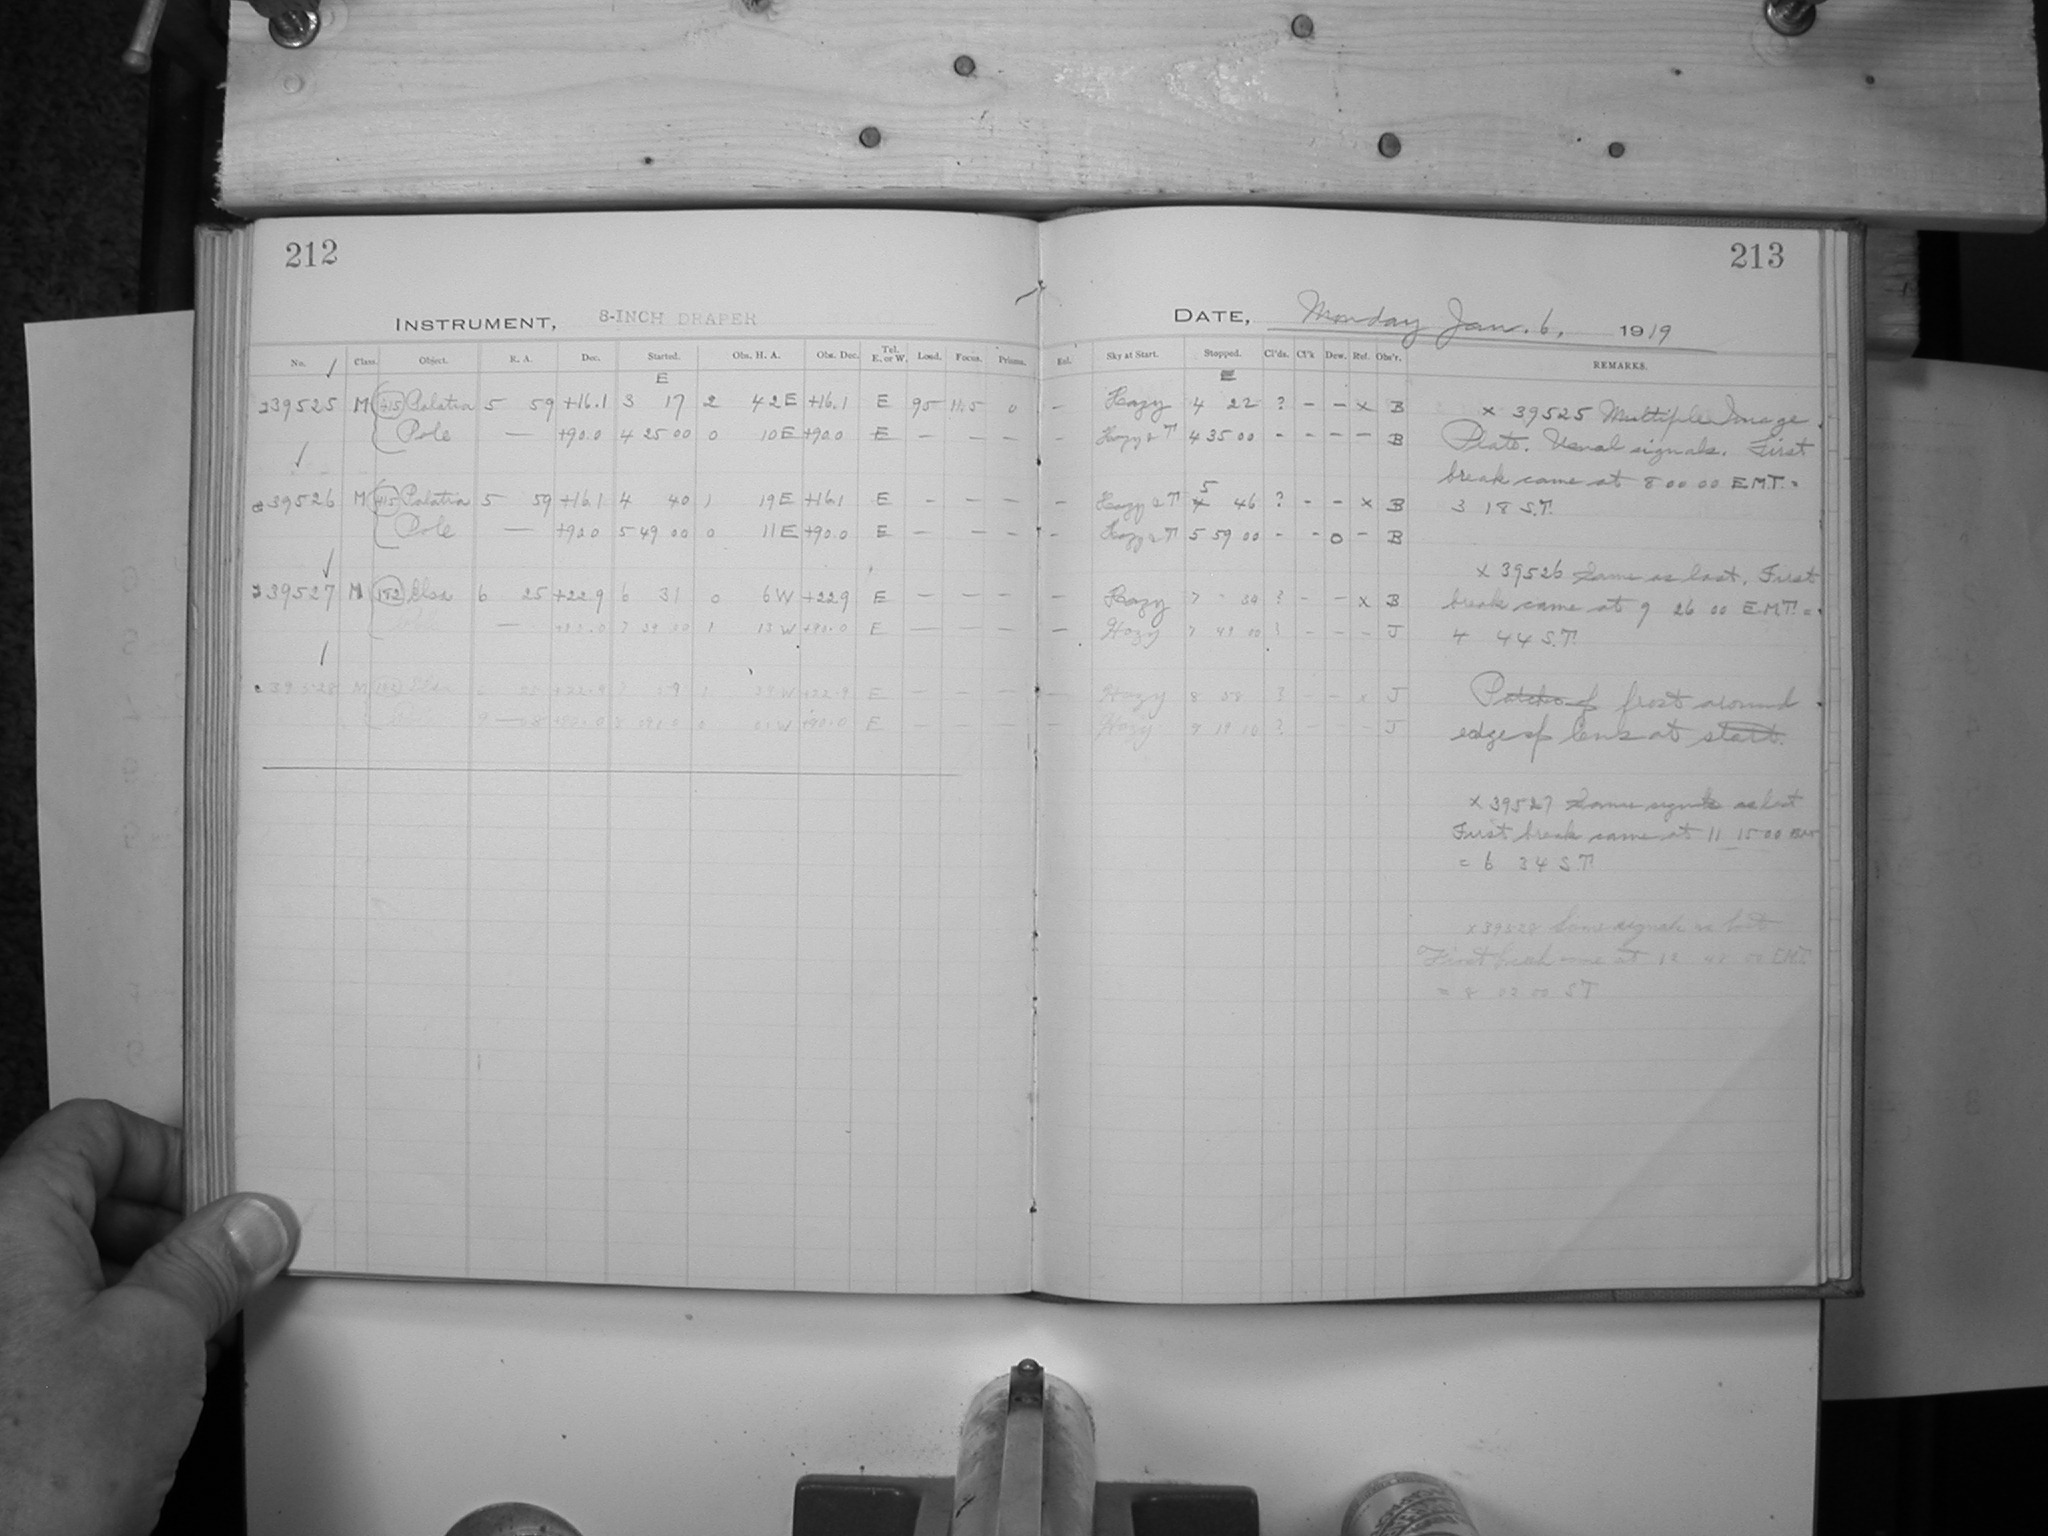 212
INSTRUMENT, 8-INCH DRAPER
No. Class. Object. R. A. Dec. Started. Obs. H. A. Obs. Dec. Tel. E. or W. Load. Focus. Prisms.
E
39525 M 415 Palatia 5 59 +16.1 3 17 2 42 E +16.1 E 95 11.5 0
Pole — +90.0 4 25 00 0 10 E +90.0 E — — — —
39526 M 415 Palatia 5 59 +16.1 4 40 1 19 E +16.1 E — — — —
Pole — +90.0 5 49 00 0 11 E +90.0 E — — — —
39527 M 182 Elsa 6 25 +22.9 6 31 0 6 W +22.9 E — — — —
— 1 13 W +90.0 E — — — —
39528 M Elsa +22.9 1 W +22.9 E — — — —
W +90.0 E — — — —
213
DATE, Monday Jan. 6, 1919
Enl. Sky at Start. Stopped. Cl'ds. Cl'k Dew. Ref. Obs'r. REMARKS.
E
— Hazy 4 22 ? — — x B
— Hazy & T 4 35 00 - - - - B
— Hazy & T 4 5 46 ? - - x B
— Hazy & T 5 59 00 - - 0 - B
— Hazy 7 ? - - x B
— Hazy 7 49 00 ? - - - J
— Hazy 8 58 ? - - x J
— Hazy 19 00 ? - - - J
x 39525 Multiple Image
Plate. Usual signals. First
break came at 8 00 00 E.M.T. =
3 18 S.T.
x 39526 Same as last. First
break came at 9 26 00 E.M.T. =
4 44 S.T.
frost around
edge of lens at start.
x 39527 Same signals as last
First break came at 11 15 00
= 6 34 S.T.
x 39528 Same signals as last
First break came at 12 00 E.M.T.
= 8 02 00 S T